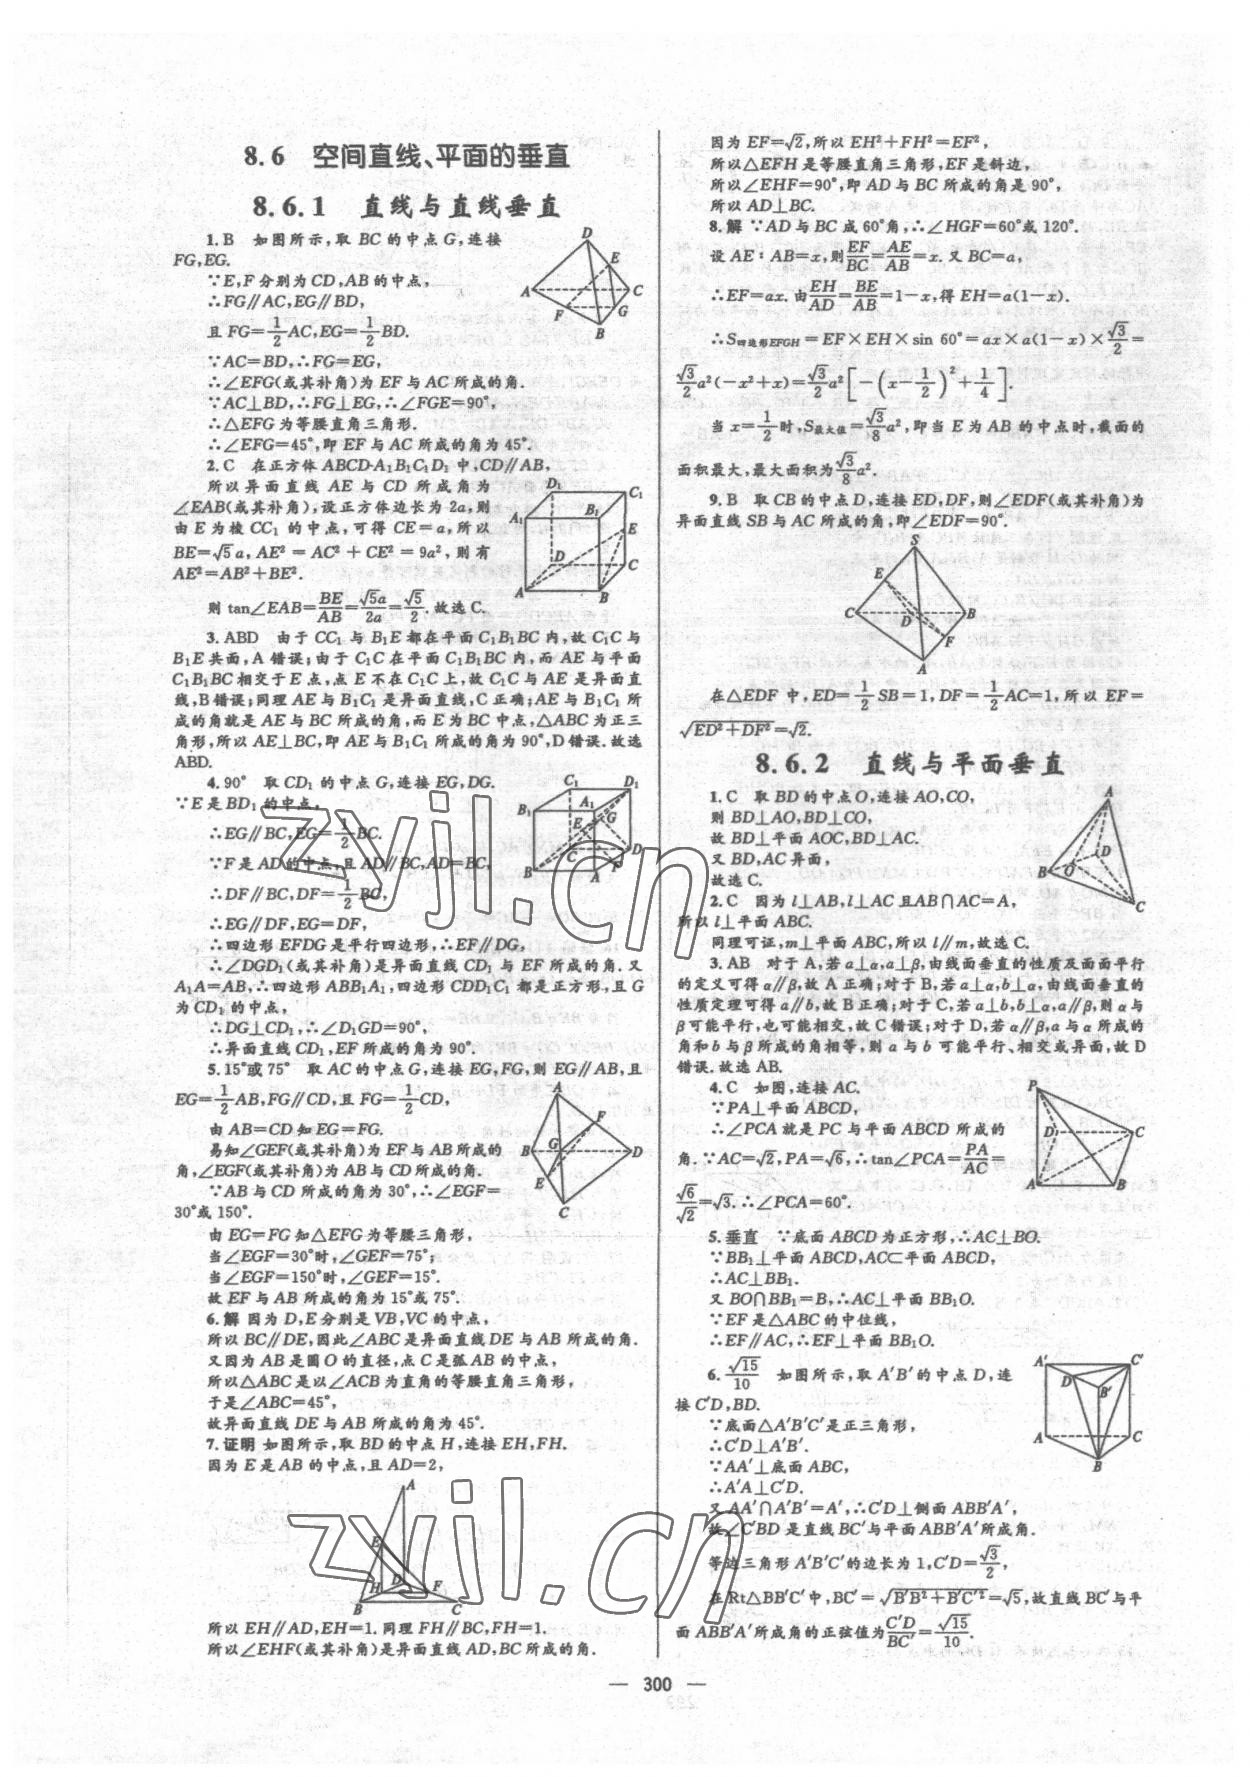 8.6 空间直线、平面的垂直
8.6.1 直线与直线垂直
1.B 如图所示,取 BC 的中点 G,连接
FG,EG.
∵E,F 分别为 CD,AB 的中点,
∴FG∥AC,EG∥BD,
且 FG=1/2AC,EG=1/2BD.
∵AC=BD,∴FG=EG,
∴∠EFG(或其补角)为 EF 与 AC 所成的角.
∵AC⊥BD,∴FG⊥EG,∴∠FGE=90°,
∴△EFG 为等腰直角三角形.
∴∠EFG=45°,即 EF 与 AC 所成的角为 45°.
2.C 在正方体 ABCD-A₁B₁C₁D₁ 中,CD∥AB,
所以异面直线 AE 与 CD 所成角为
∠EAB(或其补角),设正方体边长为 2a,则
由 E 为棱 CC₁ 的中点,可得 CE=a,所以
BE=√5a,AE²=AC²+CE²=9a²,则有
AE²=AB²+BE².
则 tan∠EAB=BE/AB=√5a/2a=√5/2.故选 C.
3.ABD 由于 CC₁ 与 B₁E 都在平面 C₁B₁BC 内,故 C₁C 与
B₁E 共面,A 错误;由于 C₁C 在平面 C₁B₁BC 内,而 AE 与平面
C₁B₁BC 相交于 E 点,点 E 不在 C₁C 上,故 C₁C 与 AE 是异面直
线,B 错误;同理 AE 与 B₁C₁ 是异面直线,C 正确;AE 与 B₁C₁ 所
成的角就是 AE 与 BC 所成的角,而 E 为 BC 中点,△ABC 为正三
角形,所以 AE⊥BC,即 AE 与 B₁C₁ 所成的角为 90°,D 错误.故选
ABD.
4.90° 取 CD₁ 的中点 G,连接 EG,DG.
∵E 是 BD₁ 的中点,
∴EG∥BC,EG=1/2BC.
∵F 是 AD 的中点,且 AD∥BC,AD=BC,
∴DF∥BC,DF=1/2BC,
∴EG∥DF,EG=DF,
∴四边形 EFDG 是平行四边形,∴EF∥DG,
∴∠DGD₁(或其补角)是异面直线 CD₁ 与 EF 所成的角.又
A₁A=AB,∴四边形 ABB₁A₁,四边形 CDD₁C₁ 都是正方形,且 G
为 CD₁ 的中点,
∴DG⊥CD₁,∴∠D₁GD=90°,
∴异面直线 CD₁,EF 所成的角为 90°.
5.15°或 75° 取 AC 的中点 G,连接 EG,FG,则 EG∥AB,且
EG=1/2AB,FG∥CD,且 FG=1/2CD,
由 AB=CD 知 EG=FG.
易知∠GEF(或其补角)为 EF 与 AB 所成的
角,∠EGF(或其补角)为 AB 与 CD 所成的角.
∵AB 与 CD 所成的角为 30°,∴∠EGF=
30°或 150°.
由 EG=FG 知△EFG 为等腰三角形,
当∠EGF=30°时,∠GEF=75°;
当∠EGF=150°时,∠GEF=15°.
故 EF 与 AB 所成的角为 15°或 75°.
6.解 因为 D,E 分别是 VB,VC 的中点,
所以 BC∥DE,因此∠ABC 是异面直线 DE 与 AB 所成的角.
又因为 AB 是圆 O 的直径,点 C 是弧 AB 的中点,
所以△ABC 是以∠ACB 为直角的等腰直角三角形,
于是∠ABC=45°,
故异面直线 DE 与 AB 所成的角为 45°.
7.证明 如图所示,取 BD 的中点 H,连接 EH,FH.
因为 E 是 AB 的中点,且 AD=2,
所以 EH∥AD,EH=1.同理 FH∥BC,FH=1.
所以∠EHF(或其补角)是异面直线 AD,BC 所成的角.
因为 EF=√2,所以 EH²+FH²=EF²,
所以△EFH 是等腰直角三角形,EF 是斜边,
所以∠EHF=90°,即 AD 与 BC 所成的角是 90°,
所以 AD⊥BC.
8.解 ∵AD 与 BC 成 60°角,∴∠HGF=60°或 120°.
设 AE∶AB=x,则EF/BC=AE/AB=x.又 BC=a,
∴EF=ax.由EH/AD=BE/AB=1-x,得 EH=a(1-x).
∴S四边形EFGH=EF×EH×sin 60°=ax×a(1-x)×√3/2=
√3/2a²(-x²+x)=√3/2a²[-(x-1/2)²+1/4].
当 x=1/2时,S最大值=√3/8a²,即当 E 为 AB 的中点时,截面的
面积最大,最大面积为√3/8a².
9.B 取 CB 的中点 D,连接 ED,DF,则∠EDF(或其补角)为
异面直线 SB 与 AC 所成的角,即∠EDF=90°.
在△EDF 中,ED=1/2SB=1,DF=1/2AC=1,所以 EF=
√(ED²+DF²)=√2.
8.6.2 直线与平面垂直
1.C 取 BD 的中点 O,连接 AO,CO,
则 BD⊥AO,BD⊥CO,
故 BD⊥平面 AOC,BD⊥AC.
又 BD,AC 异面,
故选 C.
2.C 因为 l⊥AB,l⊥AC 且 AB∩AC=A,
所以 l⊥平面 ABC.
同理可证,m⊥平面 ABC,所以 l∥m,故选 C.
3.AB 对于 A,若 a⊥α,a⊥β,由线面垂直的性质及面面平行
的定义可得 α∥β,故 A 正确;对于 B,若 a⊥α,b⊥α,由线面垂直的
性质定理可得 a∥b,故 B 正确;对于 C,若 a⊥b,b⊥α,a∥β,则 α 与
β 可能平行,也可能相交,故 C 错误;对于 D,若 α∥β,a 与 α 所成的
角和 b 与 β 所成的角相等,则 a 与 b 可能平行、相交或异面,故 D
错误.故选 AB.
4.C 如图,连接 AC.
∵PA⊥平面 ABCD,
∴∠PCA 就是 PC 与平面 ABCD 所成的
角.∵AC=√2,PA=√6,∴tan∠PCA=PA/AC=
√6/√2=√3.∴∠PCA=60°.
5.垂直 ∵底面 ABCD 为正方形,∴AC⊥BO.
∵BB₁⊥平面 ABCD,AC⊂平面 ABCD,
∴AC⊥BB₁.
又 BO∩BB₁=B,∴AC⊥平面 BB₁O.
∵EF 是△ABC 的中位线,
∴EF∥AC,∴EF⊥平面 BB₁O.
6.√15/10 如图所示,取 A′B′的中点 D,连
接 C′D,BD.
∵底面△A′B′C′是正三角形,
∴C′D⊥A′B′.
∵AA′⊥底面 ABC,
∴A′A⊥C′D.
又 AA′∩A′B′=A′,∴C′D⊥侧面 ABB′A′,
故∠C′BD 是直线 BC′与平面 ABB′A′所成角.
等边三角形 A′B′C′的边长为 1,C′D=√3/2,
在 Rt△BB′C′中,BC′=√(B′B²+B′C′²)=√5,故直线 BC′与平
面 ABB′A′所成角的正弦值为C′D/BC′=√15/10.
— 300 —
zyjl.cn
zyjl.cn